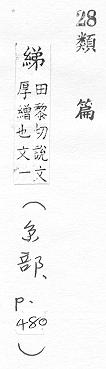 28
類篇
綈田黎切說文
厚繒也文一
(糸部、
p.
480)